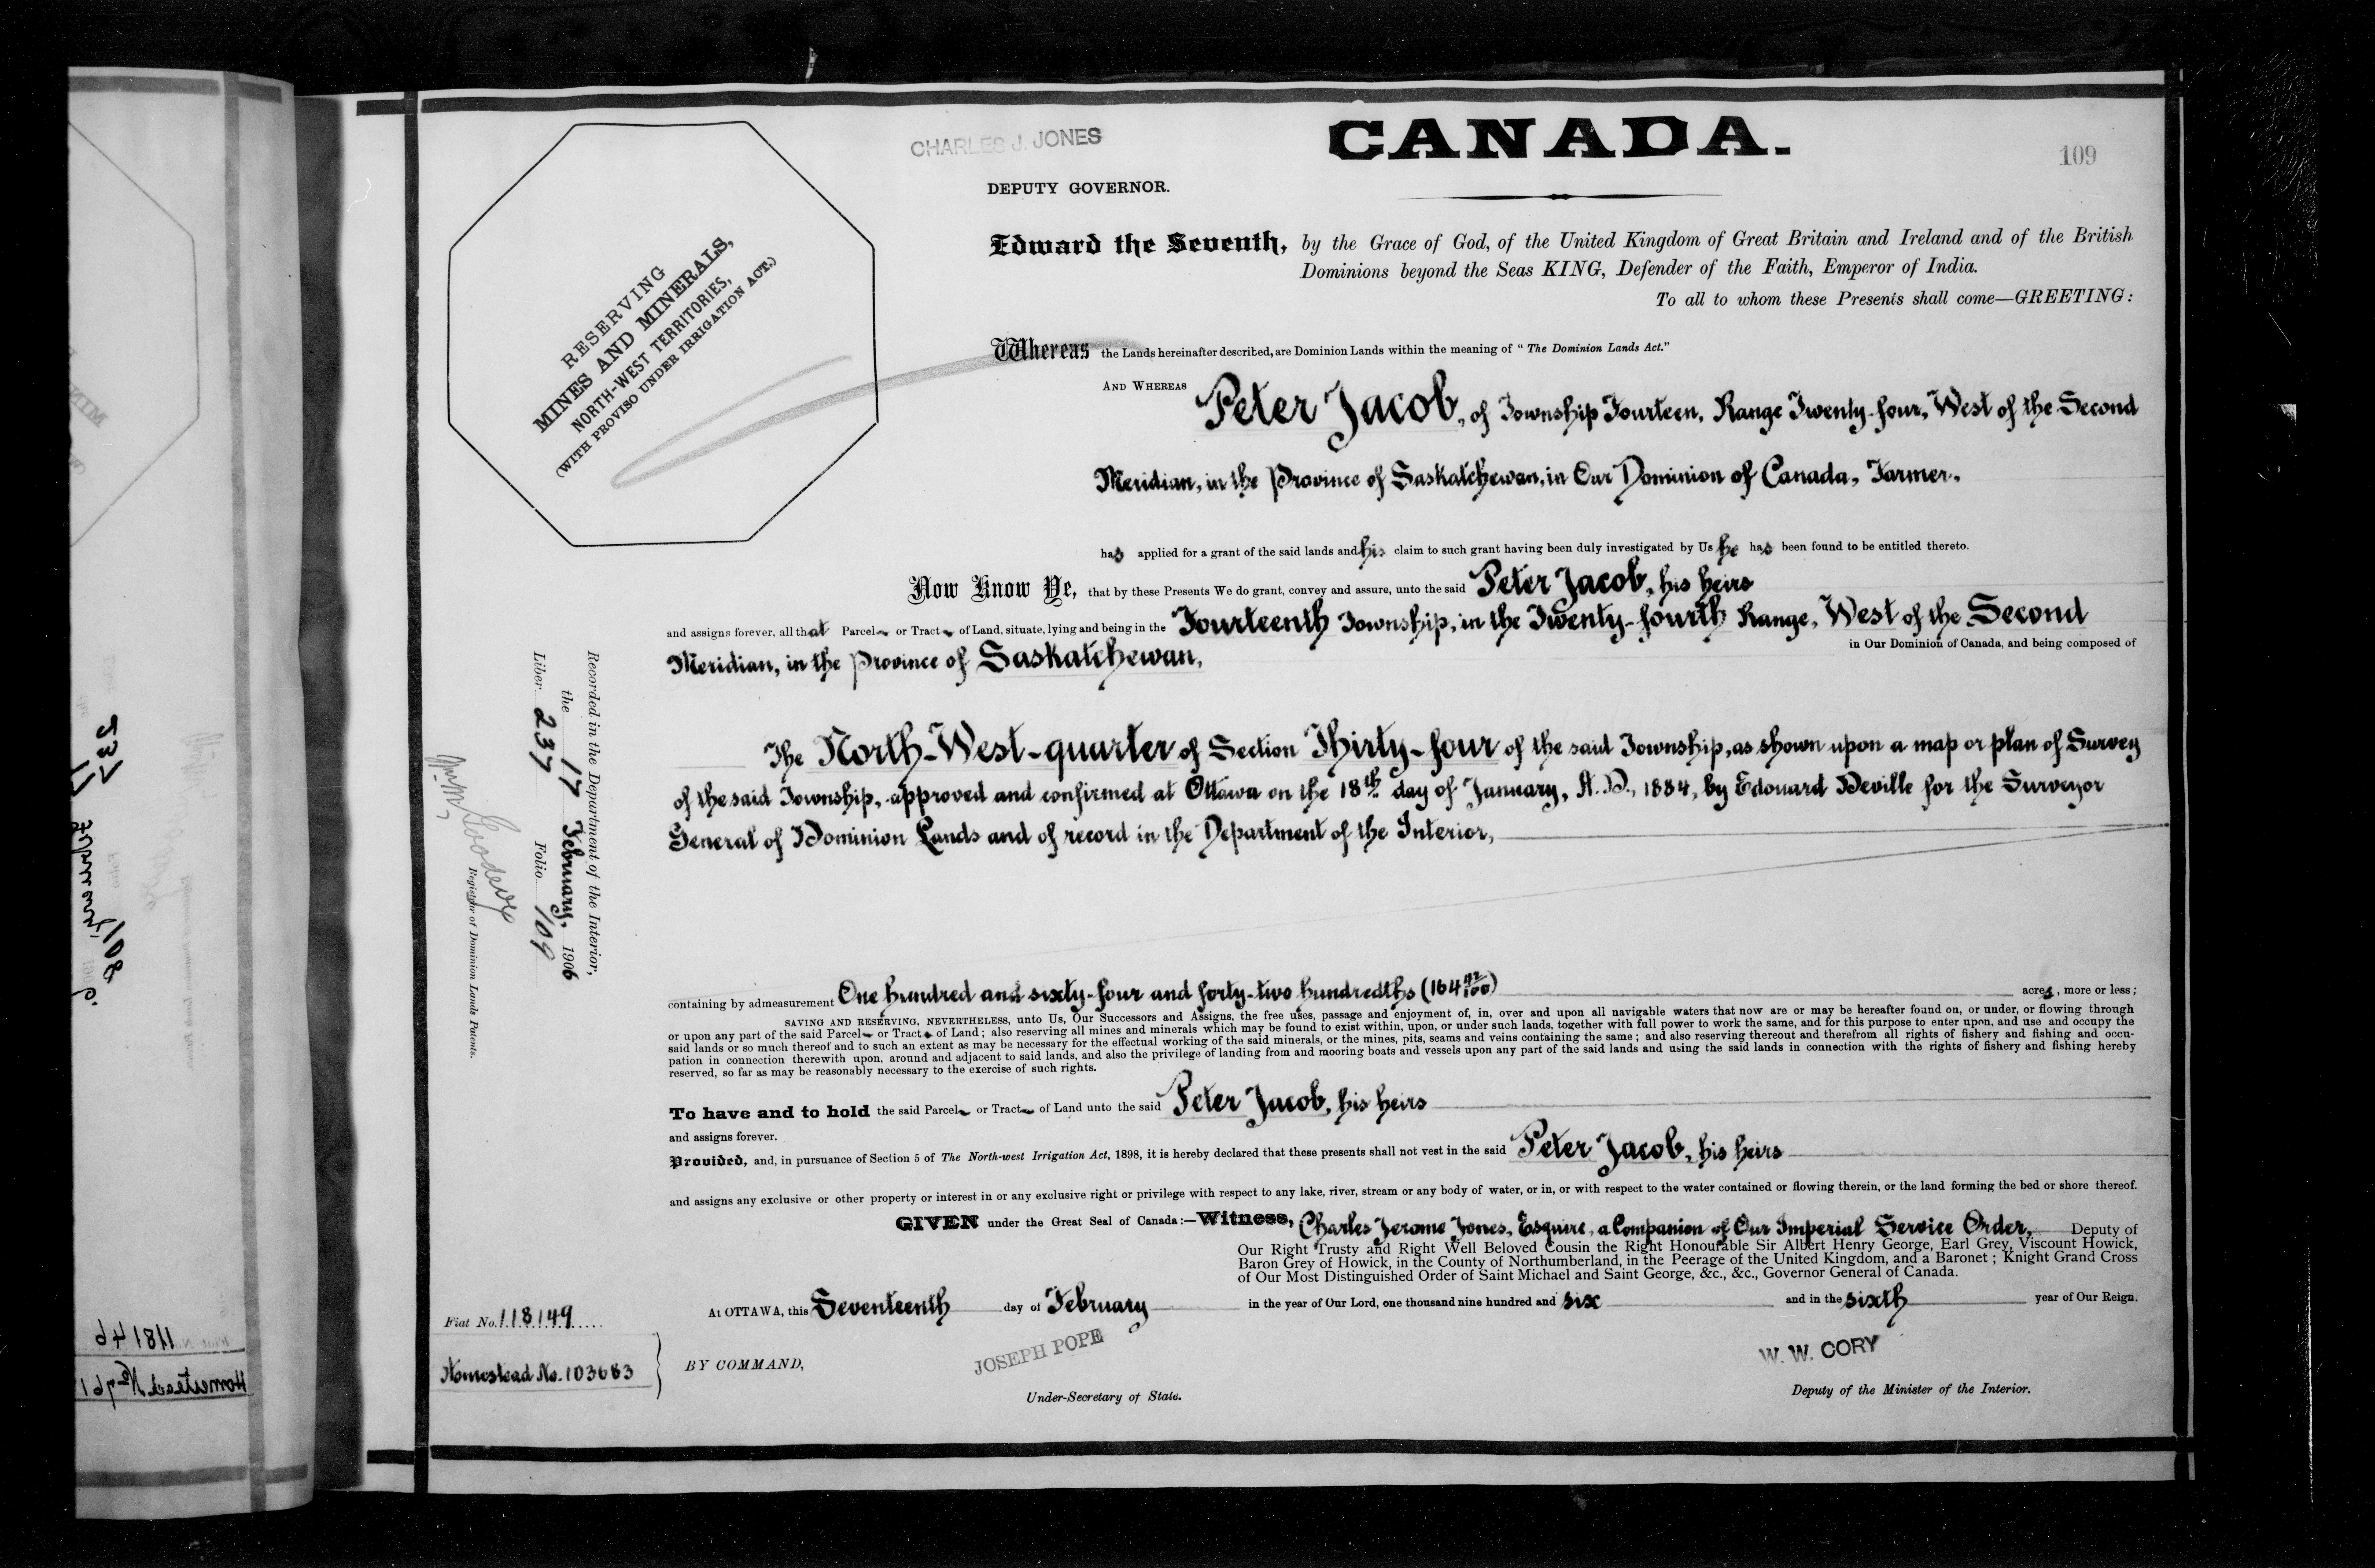 CHARLES J. JONES
CANADA.
109
DEPUTY GOVERNOR.
RESERVING
MINES AND MINERALS,
NORTH-WEST TERRITORIES,
(WITH PROVISO UNDER IRRIGATION ACT.)
Edward the Seventh, by the Grace of God, of the United Kingdom of Great Britain and Ireland and of the British
Dominions beyond the Seas KING, Defender of the Faith, Emperor of India.
To all to whom these Presents shall come—GREETING:
Whereas the Lands hereinafter described, are Dominion Lands within the meaning of "The Dominion Lands Act."
AND WHEREAS Peter Jacob, of Township Fourteen, Range Twenty-four, West of the Second
Meridian, in the Province of Saskatchewan, in Our Dominion of Canada, Farmer,
has applied for a grant of the said lands and his claim to such grant having been duly investigated by Us he has been found to be entitled thereto.
Now Know Ye, that by these Presents We do grant, convey and assure, unto the said Peter Jacob, his heirs
and assigns forever, all that Parcel or Tract of Land, situate, lying and being in the Fourteenth Township, in the Twenty-fourth Range, West of the Second
Meridian, in the Province of Saskatchewan, in Our Dominion of Canada, and being composed of
The North-West-quarter of Section Thirty-four of the said Township, as shown upon a map or plan of Survey
of the said Township, approved and confirmed at Ottawa on the 18th day of January, A.D., 1884, by Edouard Deville for the Surveyor
General of Dominion Lands and of record in the Department of the Interior,
containing by admeasurement One hundred and sixty-four and forty-two hundredths (164 42/100) acres, more or less;
SAVING AND RESERVING, NEVERTHELESS, unto Us, Our Successors and Assigns, the free uses, passage and enjoyment of, in, over and upon all navigable waters that now are or may be hereafter found on, or under, or flowing through
or upon any part of the said Parcel or Tract of Land; also reserving all mines and minerals which may be found to exist within, upon, or under such lands, together with full power to work the same, and for this purpose to enter upon, and use and occupy the
said lands or so much thereof and to such an extent as may be necessary for the effectual working of the said minerals, or the mines, pits, seams and veins containing the same; and also reserving thereout and therefrom all rights of fishery and fishing and occu-
pation in connection therewith upon, around and adjacent to said lands, and also the privilege of landing from and mooring boats and vessels upon any part of the said lands and using the said lands in connection with the rights of fishery and fishing hereby
reserved, so far as may be reasonably necessary to the exercise of such rights.
To have and to hold the said Parcel or Tract of Land unto the said Peter Jacob, his heirs
and assigns forever.
Provided, and, in pursuance of Section 5 of The North-west Irrigation Act, 1898, it is hereby declared that these presents shall not vest in the said Peter Jacob, his heirs
and assigns any exclusive or other property or interest in or any exclusive right or privilege with respect to any lake, river, stream or any body of water, or in, or with respect to the water contained or flowing therein, or the land forming the bed or shore thereof.
GIVEN under the Great Seal of Canada:—Witness, Charles Jerome Jones, Esquire, a Companion of Our Imperial Service Order, Deputy of
Our Right Trusty and Right Well Beloved Cousin the Right Honourable Sir Albert Henry George, Earl Grey, Viscount Howick,
Baron Grey of Howick, in the County of Northumberland, in the Peerage of the United Kingdom, and a Baronet; Knight Grand Cross
of Our Most Distinguished Order of Saint Michael and Saint George, &c., &c., Governor General of Canada.
At OTTAWA, this Seventeenth day of February in the year of Our Lord, one thousand nine hundred and six and in the sixth year of Our Reign.
Fiat No. 118149
Homestead No. 103683
BY COMMAND,
JOSEPH POPE
Under-Secretary of State.
W. W. CORY
Deputy of the Minister of the Interior.
Recorded in the Department of the Interior,
the 17 February, 1906
Liber 237 Folio 109
Registrar of Dominion Lands Patents.
237
17 February 1906.
108
118146